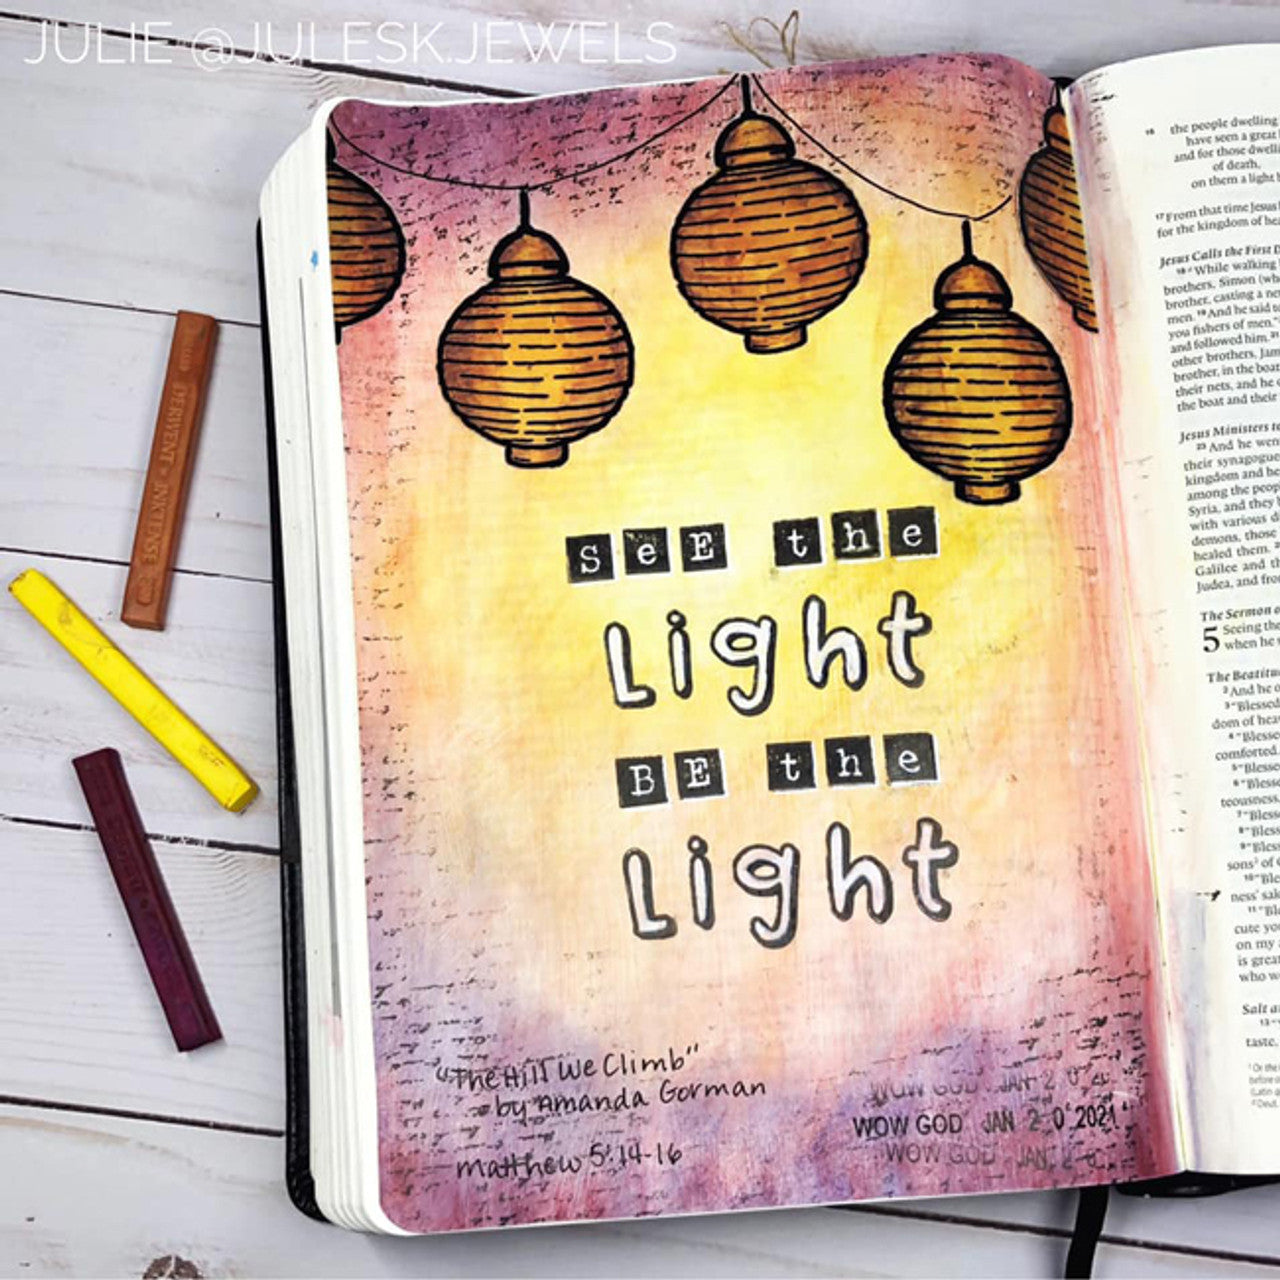 JULIE @JULESKJEWELS
DERWENT INKTENSE
SeE the
Light
BE the
Light
"The Hill We Climb"
by Amanda Gorman
Matthew 5:14-16
WOW GOD JAN 2 0
WOW GOD JAN 2 0 2021
WOW GOD JAN 2 0
16 the people dwelling
have seen a great
and for those dwelli
of death,
on them a light
17 From that time Jesus
for the kingdom of hea
Jesus Calls the First
18 While walking
brothers, Simon (wh
brother, casting a ne
men. 19 And he said to
you fishers of men."
and followed him. 21
other brothers, Jam
brother, in the boat
their nets, and he
the boat and their
Jesus Ministers to
23 And he wen
their synagogue
kingdom and he
among the peop
Syria, and they
with various d
demons, those
healed them.
Galilee and th
Judea, and fro
The Sermon o
5 Seeing the
when he
The Beatitu
2 And he o
3 "Blessed
dom of hea
4 "Blesse
comforted.
5 "Blesse
6 "Blesse
teousness,
7 "Bless
8 "Bless
9 "Bless
sons of
10 "Ble
ness' sak
11 "Bl
cute yo
on my
is grea
who w
Salt a
13 "
taste,